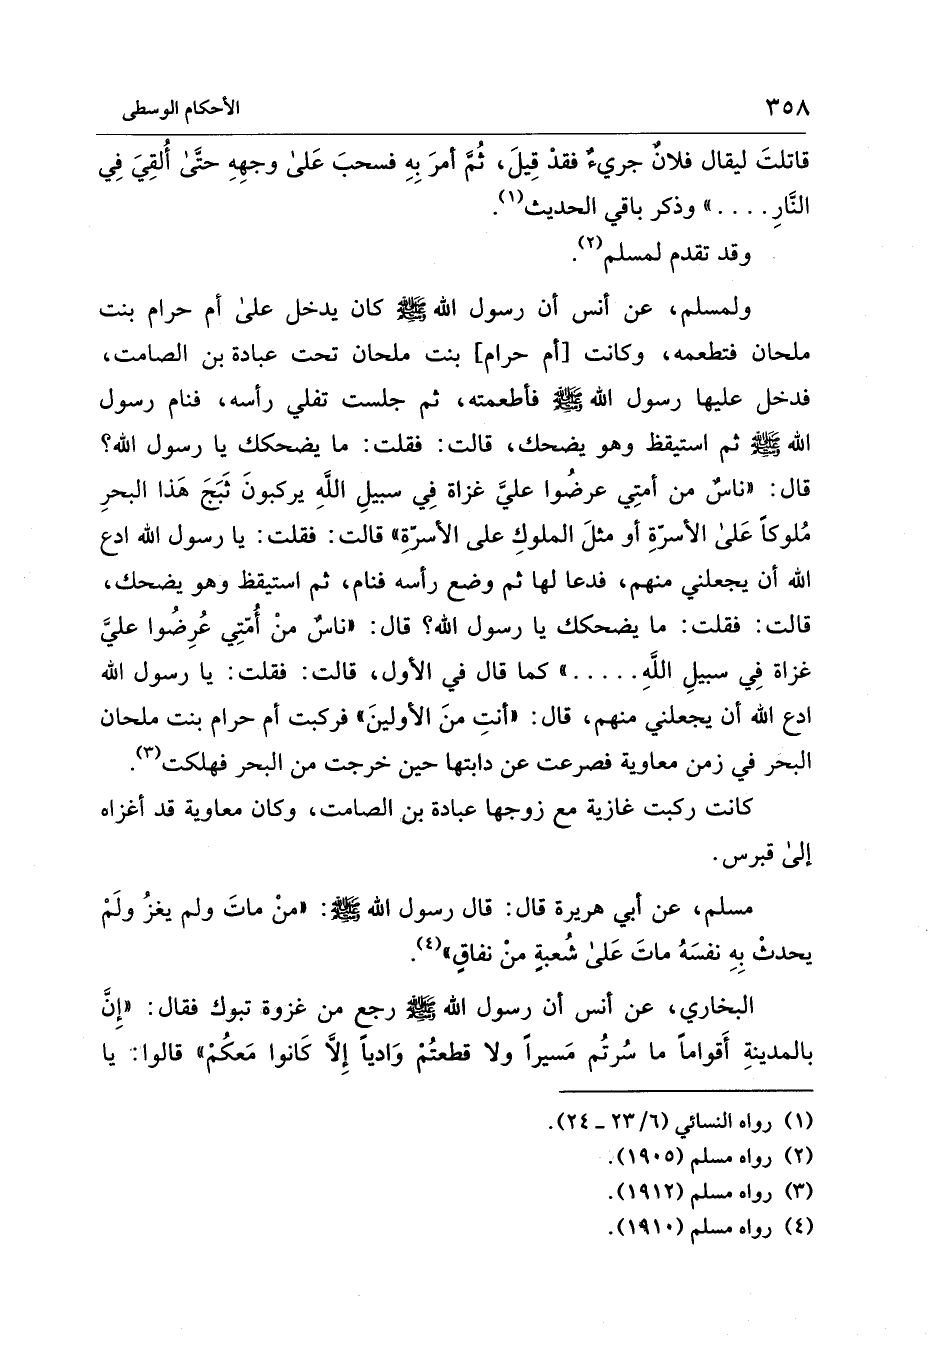 ٣٥٨ الأحكام الوسطى
قاتلتَ ليقال فلانٌ جريءٌ فقدْ قِيلَ، ثُمَّ أمرَ بِهِ فسحبَ عَلىٰ وجهِهِ حتَّىٰ أُلقِيَ فِي
النَّارِ....» وذكر باقي الحديث(١).
وقد تقدم لمسلم(٢).
ولمسلم، عن أنس أن رسول الله ﷺ كان يدخل علىٰ أم حرام بنت
ملحان فتطعمه، وكانت [أم حرام] بنت ملحان تحت عبادة بن الصامت،
فدخل عليها رسول الله ﷺ فأطعمته، ثم جلست تفلي رأسه، فنام رسول
الله ﷺ ثم استيقظ وهو يضحك، قالت: فقلت: ما يضحكك يا رسول الله؟
قال: «ناسٌ من أمتِي عرضُوا عليَّ غزاة فِي سبيلِ اللَّهِ يركبونَ ثَبَجَ هَذا البحرِ
مُلوكاً عَلىٰ الأسرّةِ أو مثلَ الملوكِ على الأسرّةِ» قالت: فقلت: يا رسول الله ادع
الله أن يجعلني منهم، فدعا لها ثم وضع رأسه فنام، ثم استيقظ وهو يضحك،
قالت: فقلت: ما يضحكك يا رسول الله؟ قال: «ناسٌ منْ أُمّتِي عُرِضُوا عليَّ
غزاة فِي سبيلِ اللَّهِ.....» كما قال في الأول، قالت: فقلت: يا رسول الله
ادع الله أن يجعلني منهم، قال: «أنتِ منَ الأولينَ» فركبت أم حرام بنت ملحان
البحر في زمن معاوية فصرعت عن دابتها حين خرجت من البحر فهلكت(٣).
كانت ركبت غازية مع زوجها عبادة بن الصامت، وكان معاوية قد أغزاه
إلىٰ قبرس.
مسلم، عن أبي هريرة قال: قال رسول الله ﷺ: «منْ ماتَ ولم يغزُ ولَمْ
يحدثْ بِهِ نفسَهُ ماتَ عَلىٰ شُعبةٍ منْ نفاقٍ»(٤).
البخاري، عن أنس أن رسول الله ﷺ رجع من غزوة تبوك فقال: «إنَّ
بالمدينةِ أَقواماً ما سُرتُم مَسيراً ولا قطعتُمْ وَادياً إِلاَّ كَانوا مَعكُمْ» قالوا: يا
(١) رواه النسائي (٦/ ٢٣ - ٢٤).
(٢) رواه مسلم (١٩٠٥).
(٣) رواه مسلم (١٩١٢).
(٤) رواه مسلم (١٩١٠).